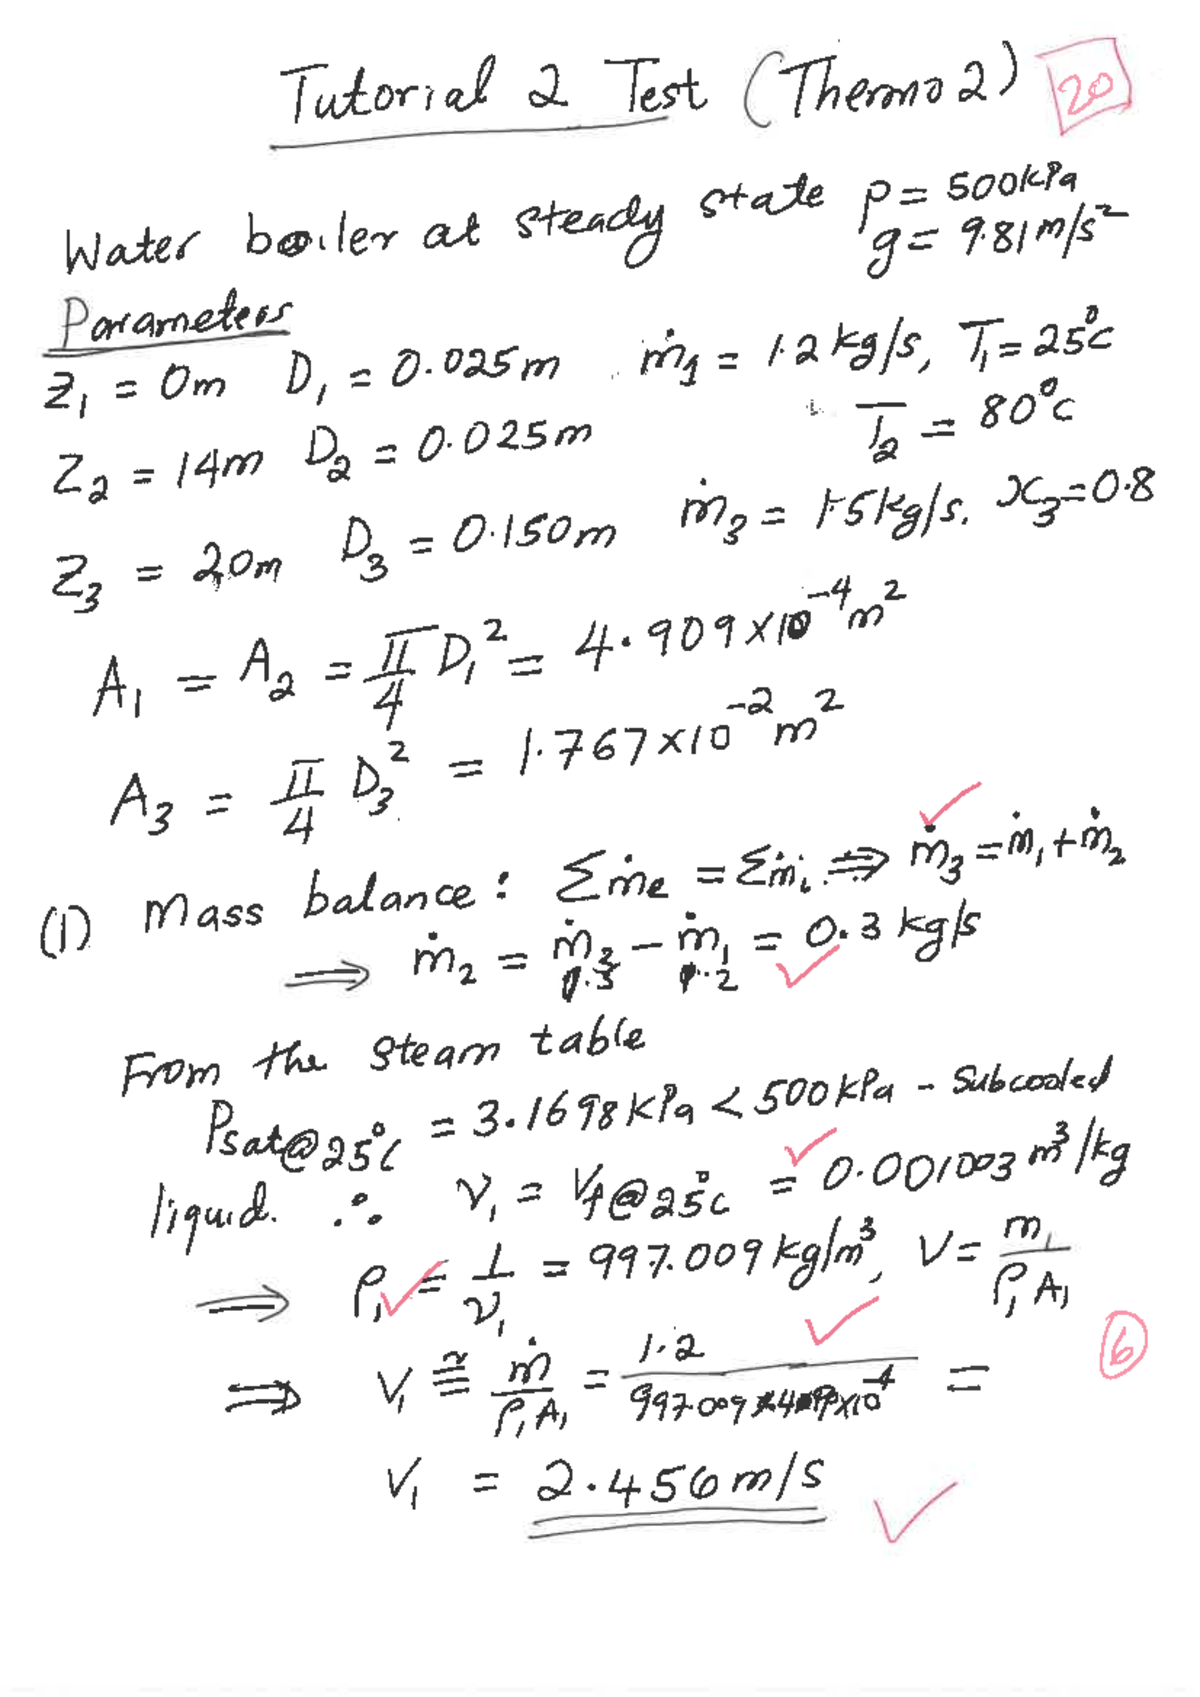 Tutorial 2 Test (Thermo 2) 20
Water boiler at steady state p = 500kPa
g = 9.81 m/s²
Parameters
Z₁ = 0m D₁ = 0.025m ṁ₁ = 1.2 kg/s, T₁ = 25°C
Z₂ = 14m D₂ = 0.025m T₂ = 80°C
Z₃ = 20m D₃ = 0.150m ṁ₃ = 1.5kg/s. x₃=0.8
A₁ = A₂ = π/4 D₁² = 4.909×10⁻⁴ m²
A₃ = π/4 D₃² = 1.767×10⁻² m²
(1) Mass balance: Σṁe = Σṁi ⇒ ṁ₃ = ṁ₁ + ṁ₂
⇒ ṁ₂ = ṁ₃ − ṁ₁ = 0.3 kg/s
1.5 1.2
From the steam table
Psat@25°C = 3.1698 kPa < 500 kPa - Subcooled
liquid. ∴ ν₁ = Vf@25°C = 0.001003 m³/kg
⇒ ρ₁ = 1/ν₁ = 997.009 kg/m³, V = m₁/ρ₁A₁
⇒ V₁ ≅ ṁ/ρ₁A₁ = 1.2/997.009×4.909×10⁻⁴ =
6
V₁ = 2.456 m/s